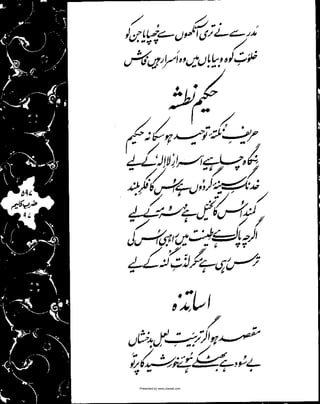 مدرسے نے تری آنکھوں سے چھپایا جن کو
خلوتِ کوہ و بیاباں میں وہ اسرار ہیں فاش
حکیم نطشہ
حریفِ نکتۂ توحید ہو سکا نہ حکیم
نگاہ چاہیے اسرارِ لا اِلٰہ کے لیے
خدنگِ سینۂ گردوں ہے اس کا فکرِ بلند
کمند اس کا تخیل ہے مہر و مہ کے لیے
اگرچہ پاک ہے طینت میں راہبی اس کی
ترس رہی ہے مگر لذتِ گنہ کے لیے
اساتذہ
مقصد ہو اگر تربیتِ لعلِ بدخشاں
بے سود ہے بھٹکے ہوئے خورشید کا پرتو
۵۹۷
ضرب کلیم
۹۷
Presented by www.ziaraat.com